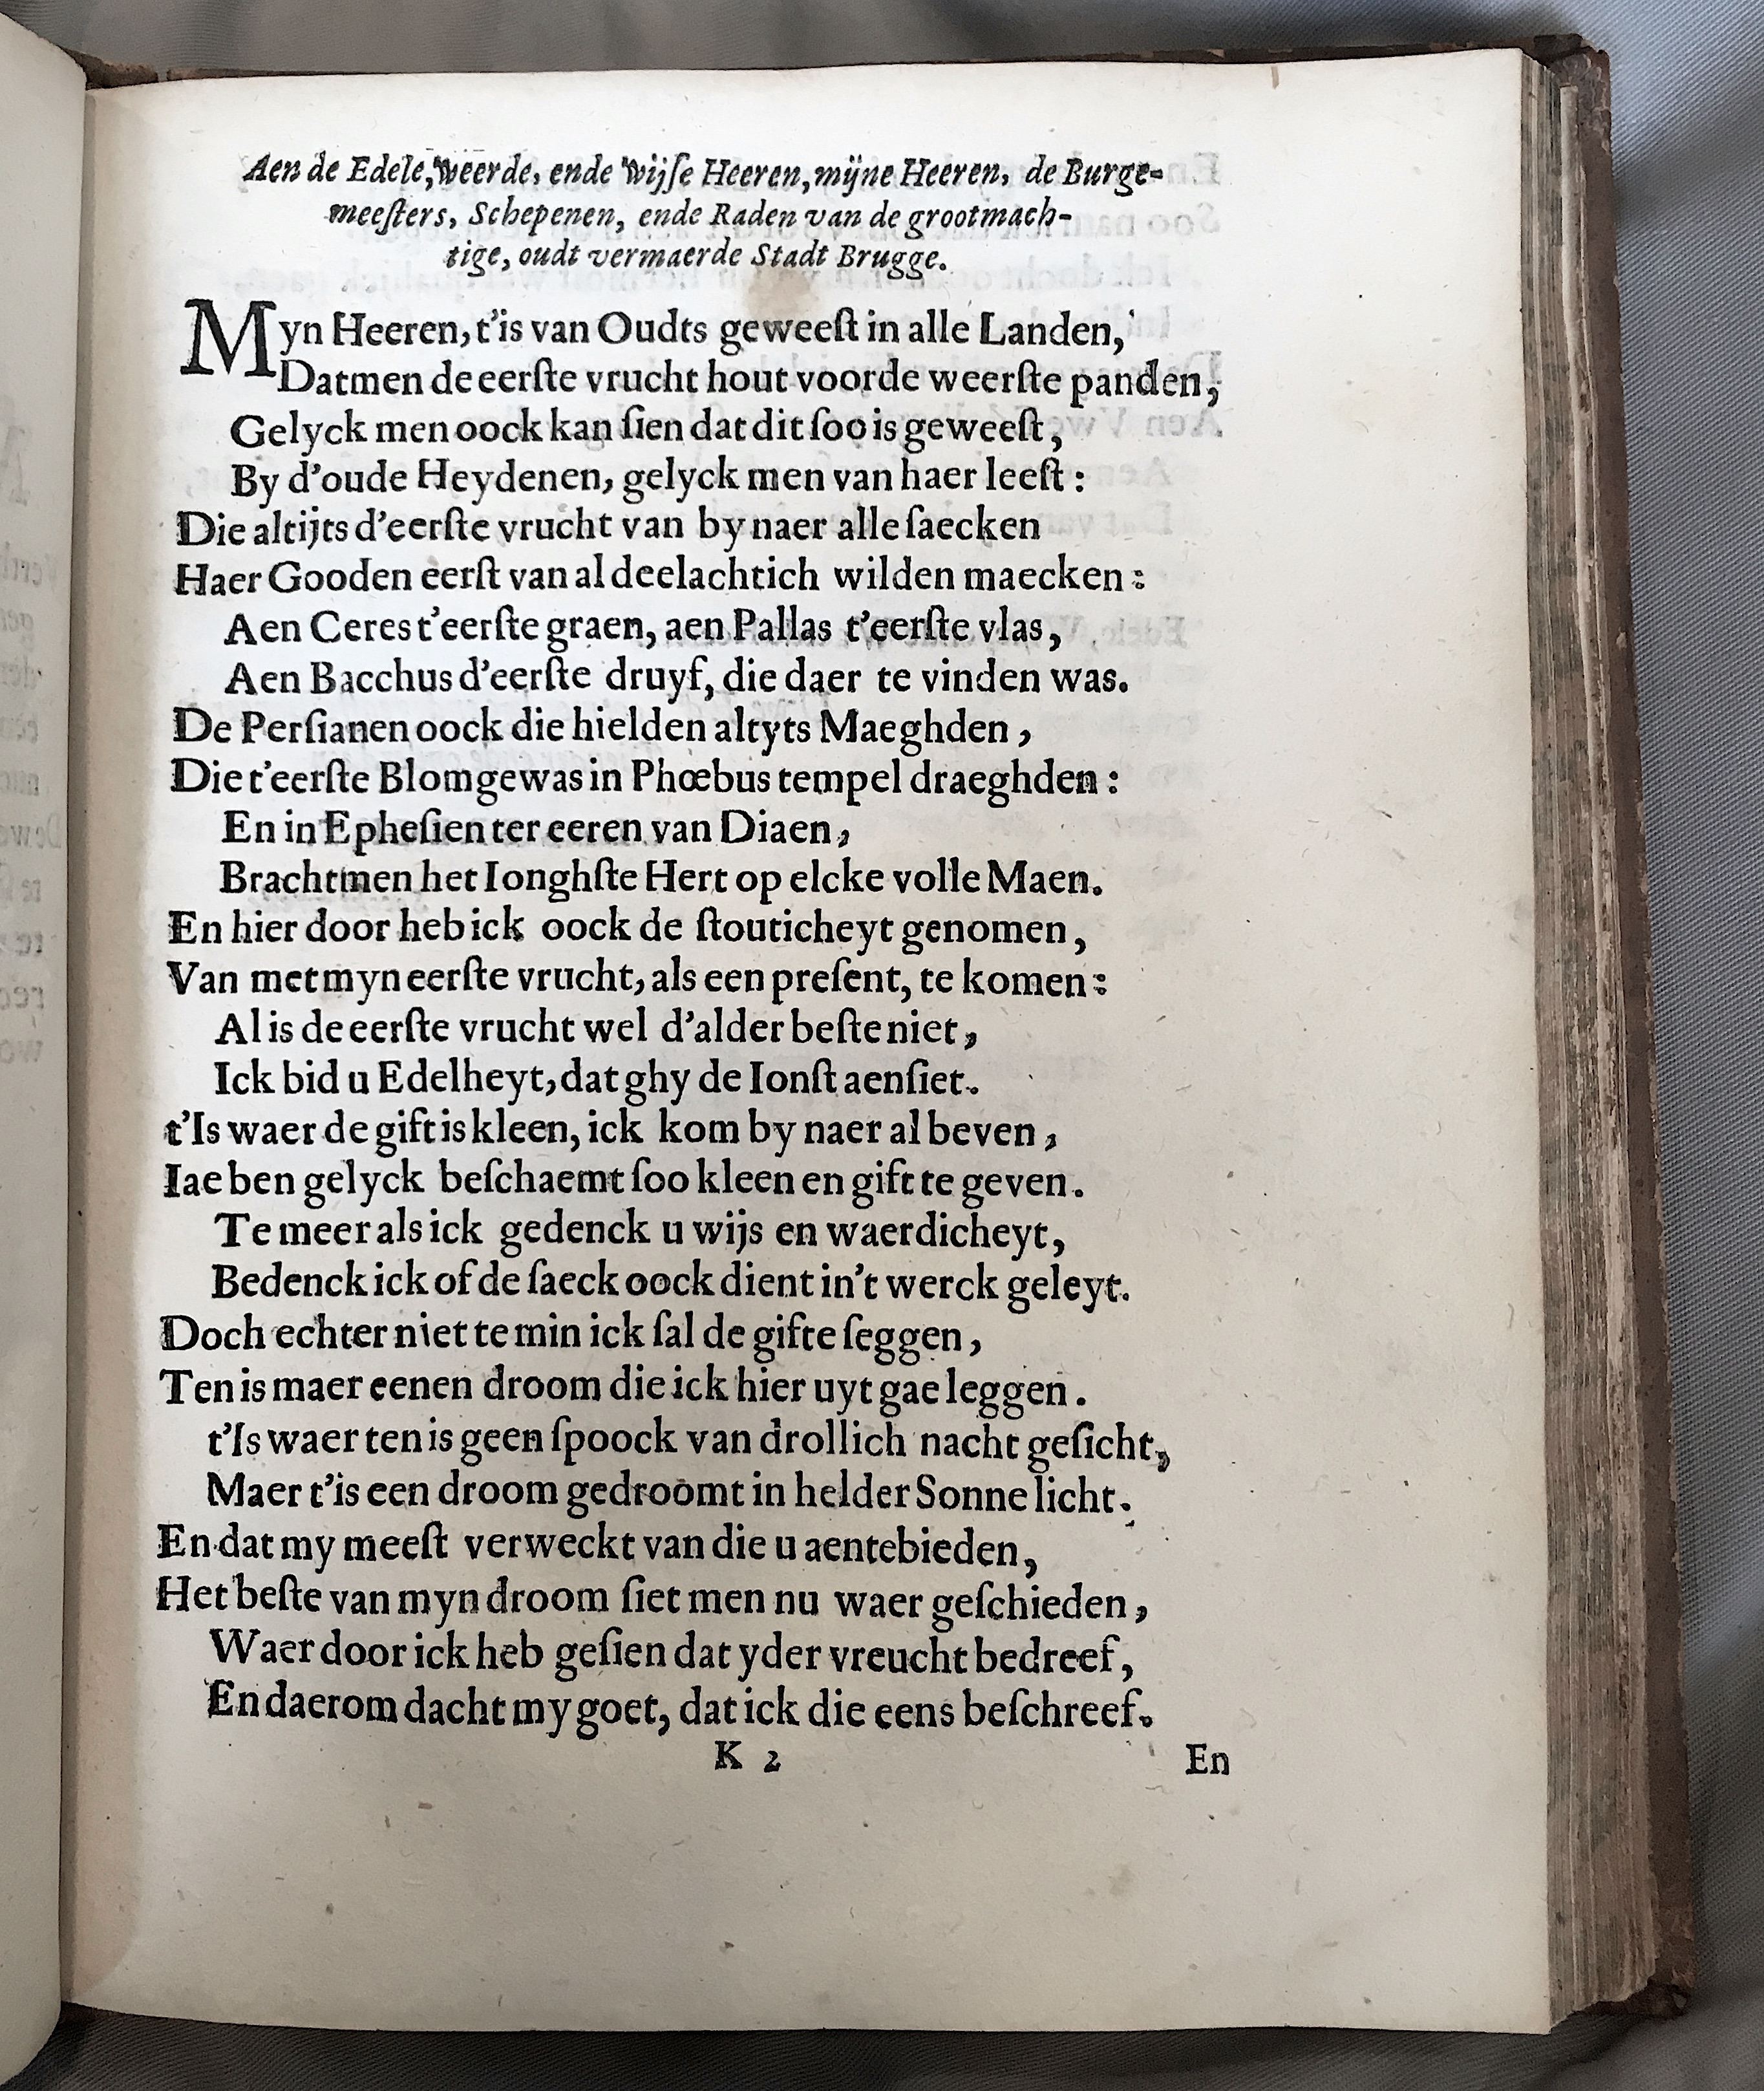 Aen de Edele, weerde, ende wijſe Heeren, mijne Heeren, de Burge-
meeſters, Schepenen, ende Raden van de grootmach-
tige, oudt vermaerde Stadt Brugge.
Myn Heeren, t'is van Oudts geweeſt in alle Landen,
Datmen de eerſte vrucht hout voorde weerſte panden,
Gelyck men oock kan ſien dat dit ſoo is geweeſt,
By d'oude Heydenen, gelyck men van haer leeſt:
Die altijts d'eerſte vrucht van by naer alle ſaecken
Haer Gooden eerſt van al deelachtich wilden maecken:
Aen Ceres t'eerſte graen, aen Pallas t'eerſte vlas,
Aen Bacchus d'eerſte druyf, die daer te vinden was.
De Perſianen oock die hielden altyts Maeghden,
Die t'eerſte Blomgewas in Phœbus tempel draeghden:
En in Epheſien ter eeren van Diaen,
Brachtmen het Ionghſte Hert op elcke volle Maen.
En hier door heb ick oock de ſtouticheyt genomen,
Van met myn eerſte vrucht, als een preſent, te komen:
Al is de eerſte vrucht wel d'alder beſte niet,
Ick bid u Edelheyt, dat ghy de Ionſt aenſiet.
t'Is waer de gift is kleen, ick kom by naer al beven,
Iae ben gelyck beſchaemt ſoo kleen en gift te geven.
Te meer als ick gedenck u wijs en waerdicheyt,
Bedenck ick of de ſaeck oock dient in't werck geleyt.
Doch echter niet te min ick ſal de gifte ſeggen,
Ten is maer eenen droom die ick hier uyt gae leggen.
t'Is waer ten is geen ſpoock van drollich nacht geſicht,
Maer t'is een droom gedroomt in helder Sonne licht.
En dat my meeſt verweckt van die u aentebieden,
Het beſte van myn droom ſiet men nu waer geſchieden,
Waer door ick heb geſien dat yder vreucht bedreef,
En daerom dacht my goet, dat ick die eens beſchreef.
K 2 En